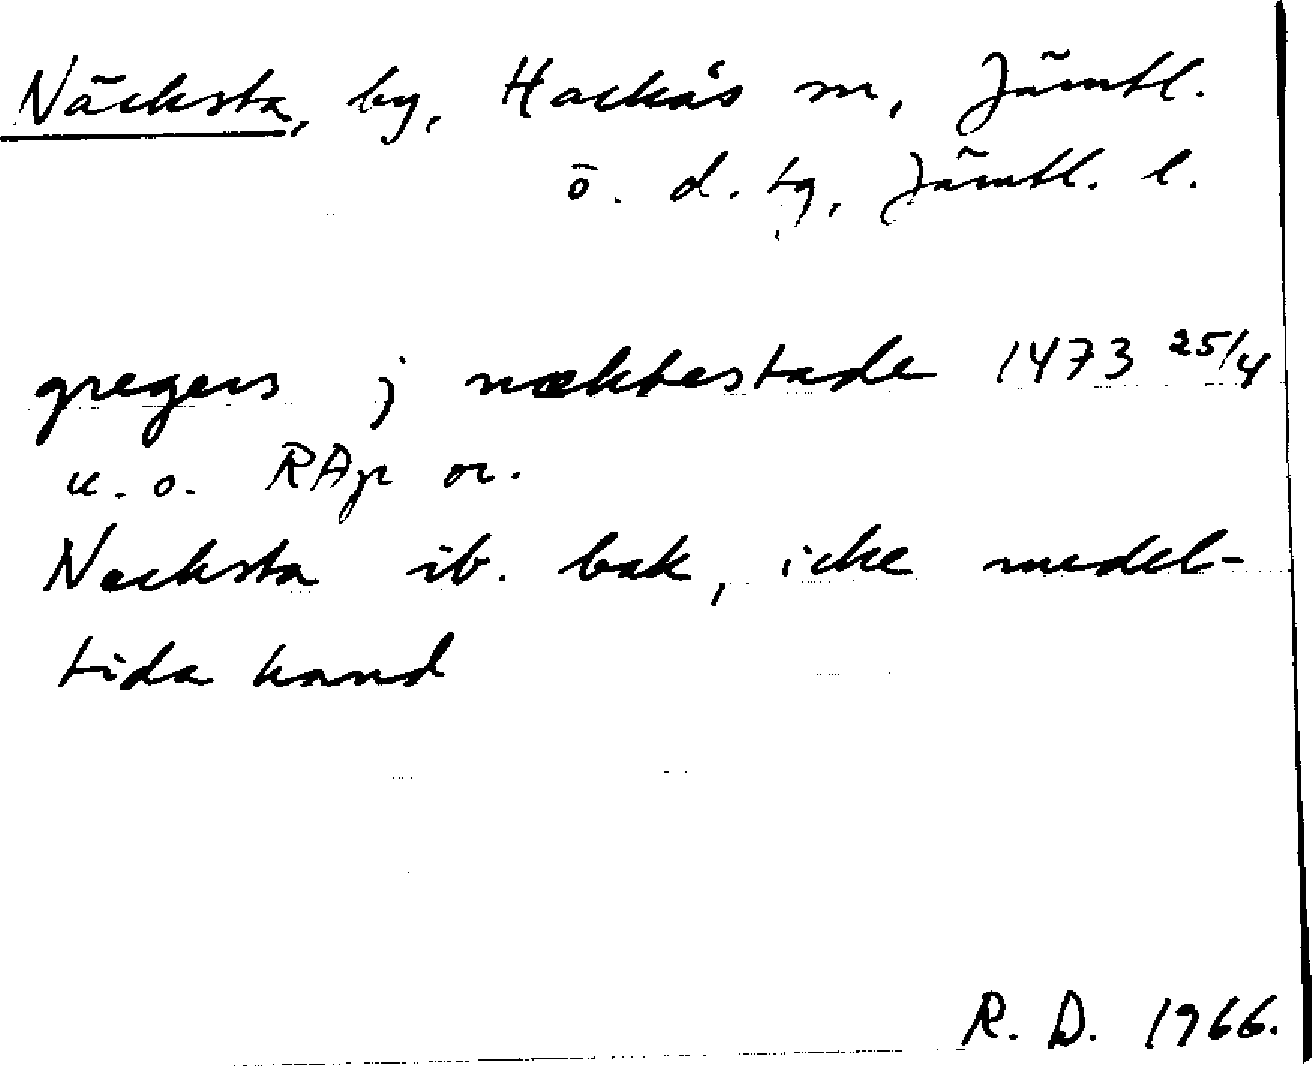 Näcksta, by, Hackås sn, Jämtl.
ö. d. tg, Jämtl. l.
gregers j nækbestade 1473 25/4
u. o. RAp or.
Necksta ib. bak, icke medel-
tida hand
R. D. 1966.